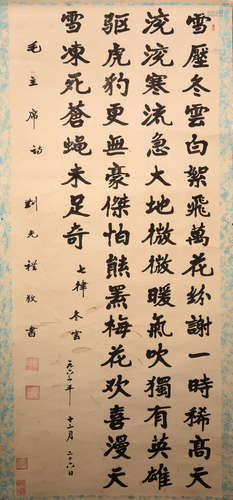 雪壓冬雲白絮飛萬花紛謝一時稀高天
滾滾寒流急大地微微暖氣吹獨有英雄
驅虎豹更無豪傑怕熊羆梅花欢喜漫天
雪凍死蒼蝇未足奇
七律 冬雲
一九六二年 十二月 二十六日
毛主席詩 劉光 敬書